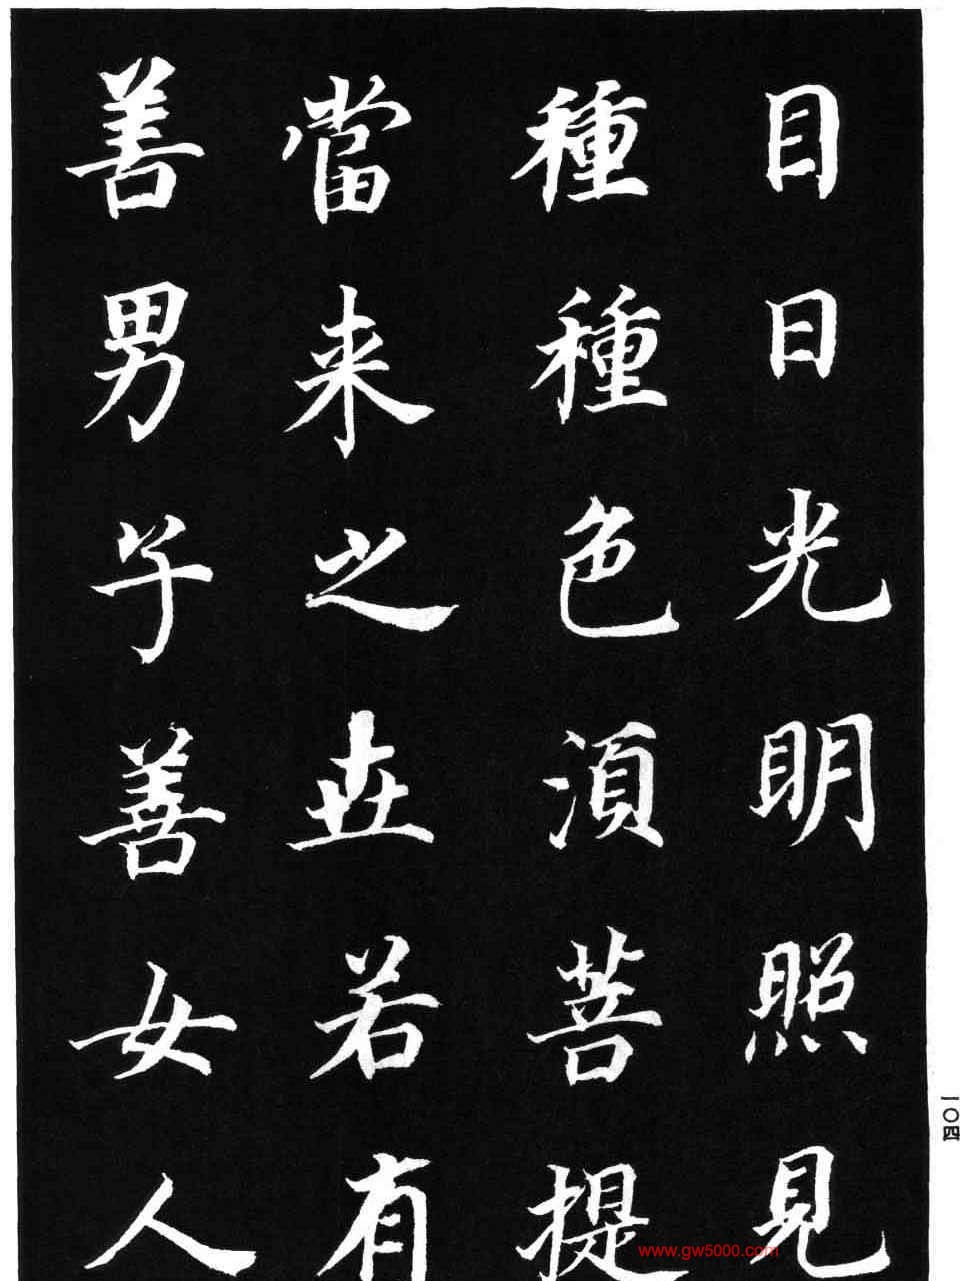 目日光明照見
種種色須菩提
當来之世若有
善男子善女人
一〇四
www.gw5000.com